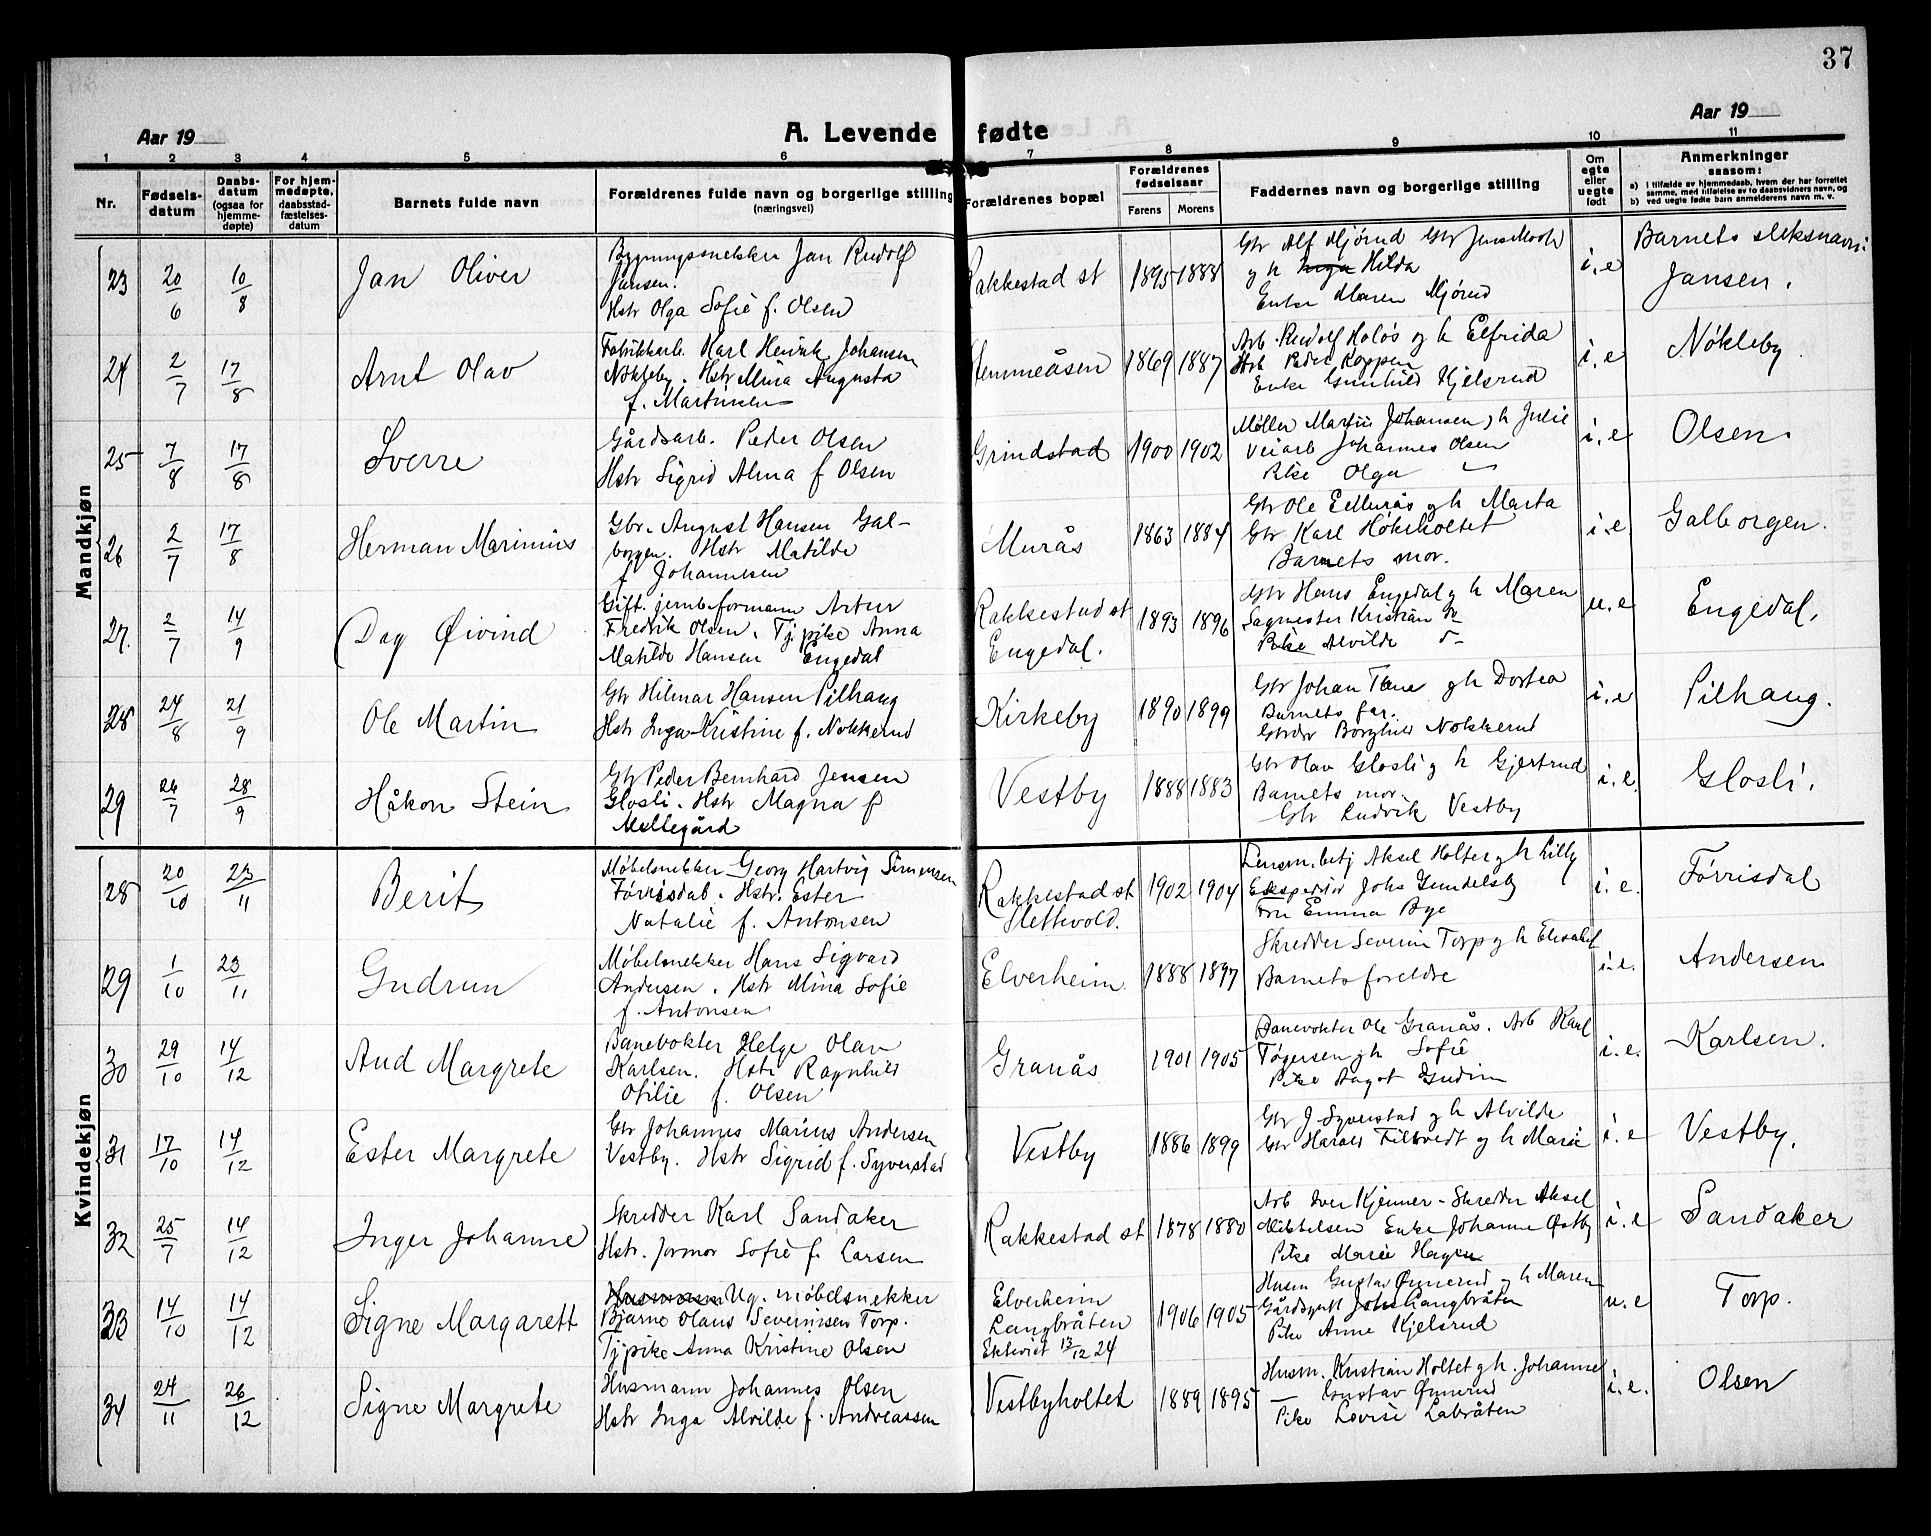 37
Aar 19
A. Levende fødte
Aar 19
1 2 3 4 5 6 7 8 9 10 11
Nr.
Fødsels-
datum
Daabs-
datum
(ogsaa for
hjemme-
døpte)
For hjem-
medøpte,
daabsstad-
fæstelses-
datum
Barnets fulde navn
Forældrenes fulde navn og borgerlige stilling
(næringsvei)
Forældrenes bopæl
Forældrenes
fødselsaar
Farens Morens
Faddernes navn og borgerlige stilling
Om
ægte
eller
uegte
født
Anmerkninger
saasom:
a) I tilfælde av hjemmedaab, hvem der har forrettet
samme, med tilføielse av to daabsvidners navn, og
b) ved uegte fødte barn anmelderens navn m. v.
Mandkjøn
23 20/6 10/8 Jan Oliver
Bygningssnekker Jan Rudolf
Jansen.
Hstr Olga Sofie f. Olsen
Rakkestad st 1895 1888
Gbr Alf Mjørud Gbr Jens Moch
og h Inga Hilda
Enke Maren Mjørud
i. e
Barnets sleksnavn:
Jansen.
24 2/7 17/8 Arnt Olav
Fabrikkarb. Karl Henrik Johansen
Nøkleby. Hstr Mina Augusta
f. Martinsen
Stemmeåsen 1869 1887
Arb. Rudolf Holøs og h Elfrida
Arb Peder Koppen
Enke Gunhild Kjelsrud
i. e
Nøkleby
25 7/8 17/8 Sverre
Gårdsarb. Peder Olsen
Hstr Sigrid Alma f Olsen
Grindstad 1900 1902
Møller Martin Johansen, h Julie
Veiarb Johannes Olsen
Pike Olga —
i. e
Olsen.
26 2/7 17/8 Herman Marinius
Gbr. August Hansen Gal-
borgen. Hstr Matilde
f Johannesen
Murås 1863 1884
Gbr Ole Edlurås og h Marta
Gbr Karl Høkholtet
Barnets mor.
i. e
Galborgen.
27. 2/7 14/9 Dag Øivind
Gift. jernb.formann Artur
Fredrik Olsen. Tj pike Anna
Matilde Hansen Engedal
Rakkestad st
Engedal.
1893 1896
Gbr Hans Engedal og h Maren
Sagmester Kristian do
Pike Alvilde do
u. e
Engedal.
28 24/8 21/9 Ole Martin
Gbr Hilmar Hansen Pilhaug
Hstr Inga Kristine f. Nokkerud
Kirkeby 1890 1899
Gbr Johan Tane og h Dortea
Barnets far.
Gbrdr Borghild Nokkerud
i. e
Pilhaug.
29 26/7 28/9 Håkon Stein
Gbr Peder Bernhard Jensen
Glosli. Hstr Magna f
Møllegård
Vestby 1888 1883
Gbr Olav Glosli og h Gjertrud
Barnets mor.
Gbr Ludvik Vestby
i. e.
Glosli.
Kvindekjøn
28 20/10 23/11 Berit
Møbelsnekker Georg Hartvig Simensen
Førrisdal. Hstr. Ester
Natalie f. Antonsen
Rakkestad st
Slettevold.
1902 1904
Lensm.betj Aksel Holter og h Lilly
Ekspeditør Johs Gundelsby
Fru Emma Bye
i. e.
Førrisdal
29 1/10 23/11 Gudrun
Møbelsnekker Hans Sigvard
Andersen. Hstr Mina Sofie
f. Antonsen
Elverheim. 1888 1897
Skredder Severin Torp og h Elisabet
Barnets foreldre
i. e.
Andersen
30 29/10 14/12 Aud Margrete
Banevokter Helge Olav
Karlsen. Hstr Ragnhild
Otilie f. Olsen
Granås 1901 1905
Banevokter Ole Granås. Arb Karl
Tøgersen og h Sofie
Pike Aagot Gudim
i. e.
Karlsen.
31 17/10 14/12 Ester Margrete
Gbr Johannes Marius Andersen
Vestby. Hstr Sigrid f. Syverstad
Vestby 1886 1899
Gbr J. Syverstad og h Alvilde
Gbr Harald Filtvedt og h Marie
i. e
Vestby.
32 25/7 14/12 Inger Johanne
Skredder Karl Sandaker
Hstr. Jormor Sofie f. Larsen
Rakkestad st 1878 1880
Arb Iver Kjenner - Skredder Aksel
Mikkelsen Enke Johanne Østby
Pike Marie Hagen
i. e
Sandaker
33 14/10 14/12 Signe Margarett
Husmann Ug. møbelsnekker
Bjarne Olaus Severinsen Torp.
Tj pike Anna Kristine Olsen
Elverheim
Langbråten
Ektevict 13/12 24
1906 1905
Husm Gustav Ønnerud og h Maren
Gårdsgutt Johs Langbråten
Pike Anne Kjelsrud
u. e
Torp.
34 24/11 26/12 Signe Margrete
Husmann Johannes Olsen
Hstr Inga Alvilde f. Andreassen
Vestbyholtet 1889 1895
Husm. Kristian Holtet og h. Johanne
— Gustav Ønnerud
Pike Lovise Labråten
i. e.
Olsen